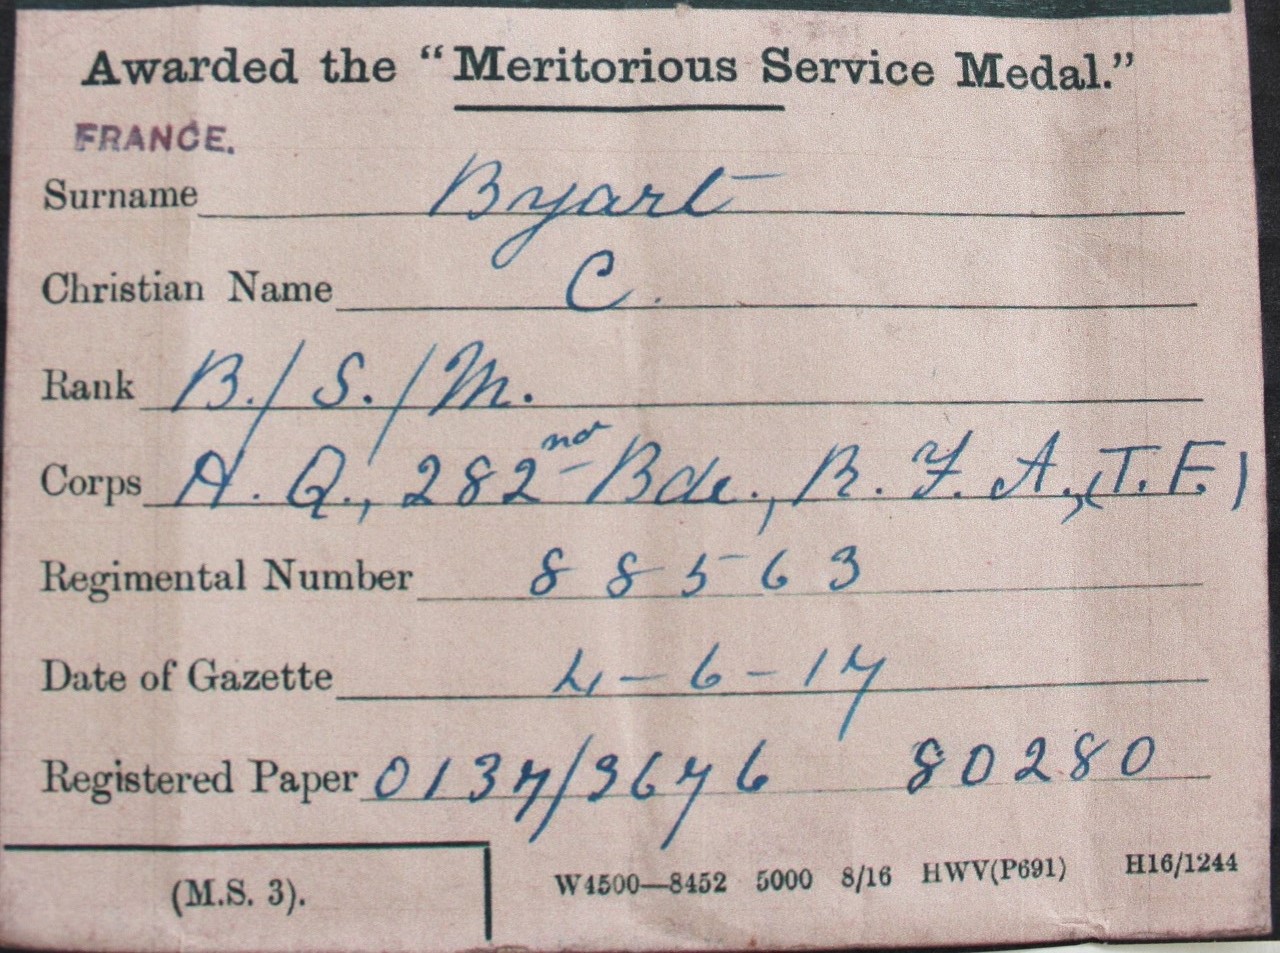 Awarded the "Meritorious Service Medal."
FRANCE.
Surname Byart
Christian Name C.
Rank B./S./M.
Corps A. Q., 282nd Bde., R. F. A., (T. F.)
Regimental Number 88563
Date of Gazette 4-6-17
Registered Paper 0137/3676 80280
(M.S. 3).
W4500—8452 5000 8/16 HWV(P691) H16/1244